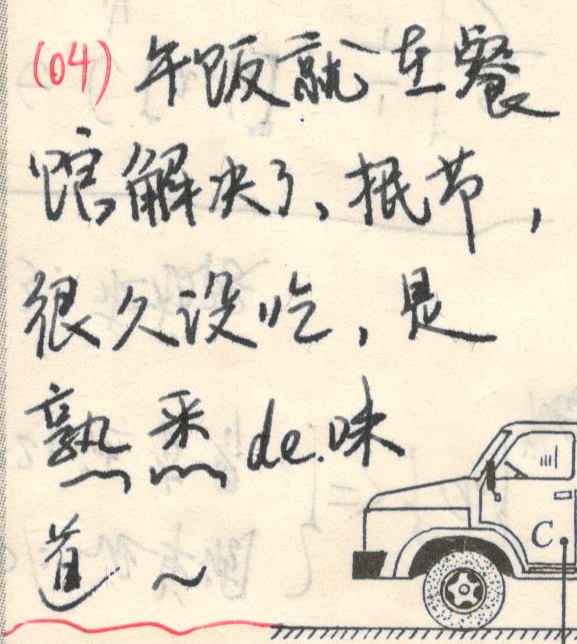 (04) 午饭就在餐
馆解决了、抿节，
很久没吃，是
熟悉de.味
道～
C